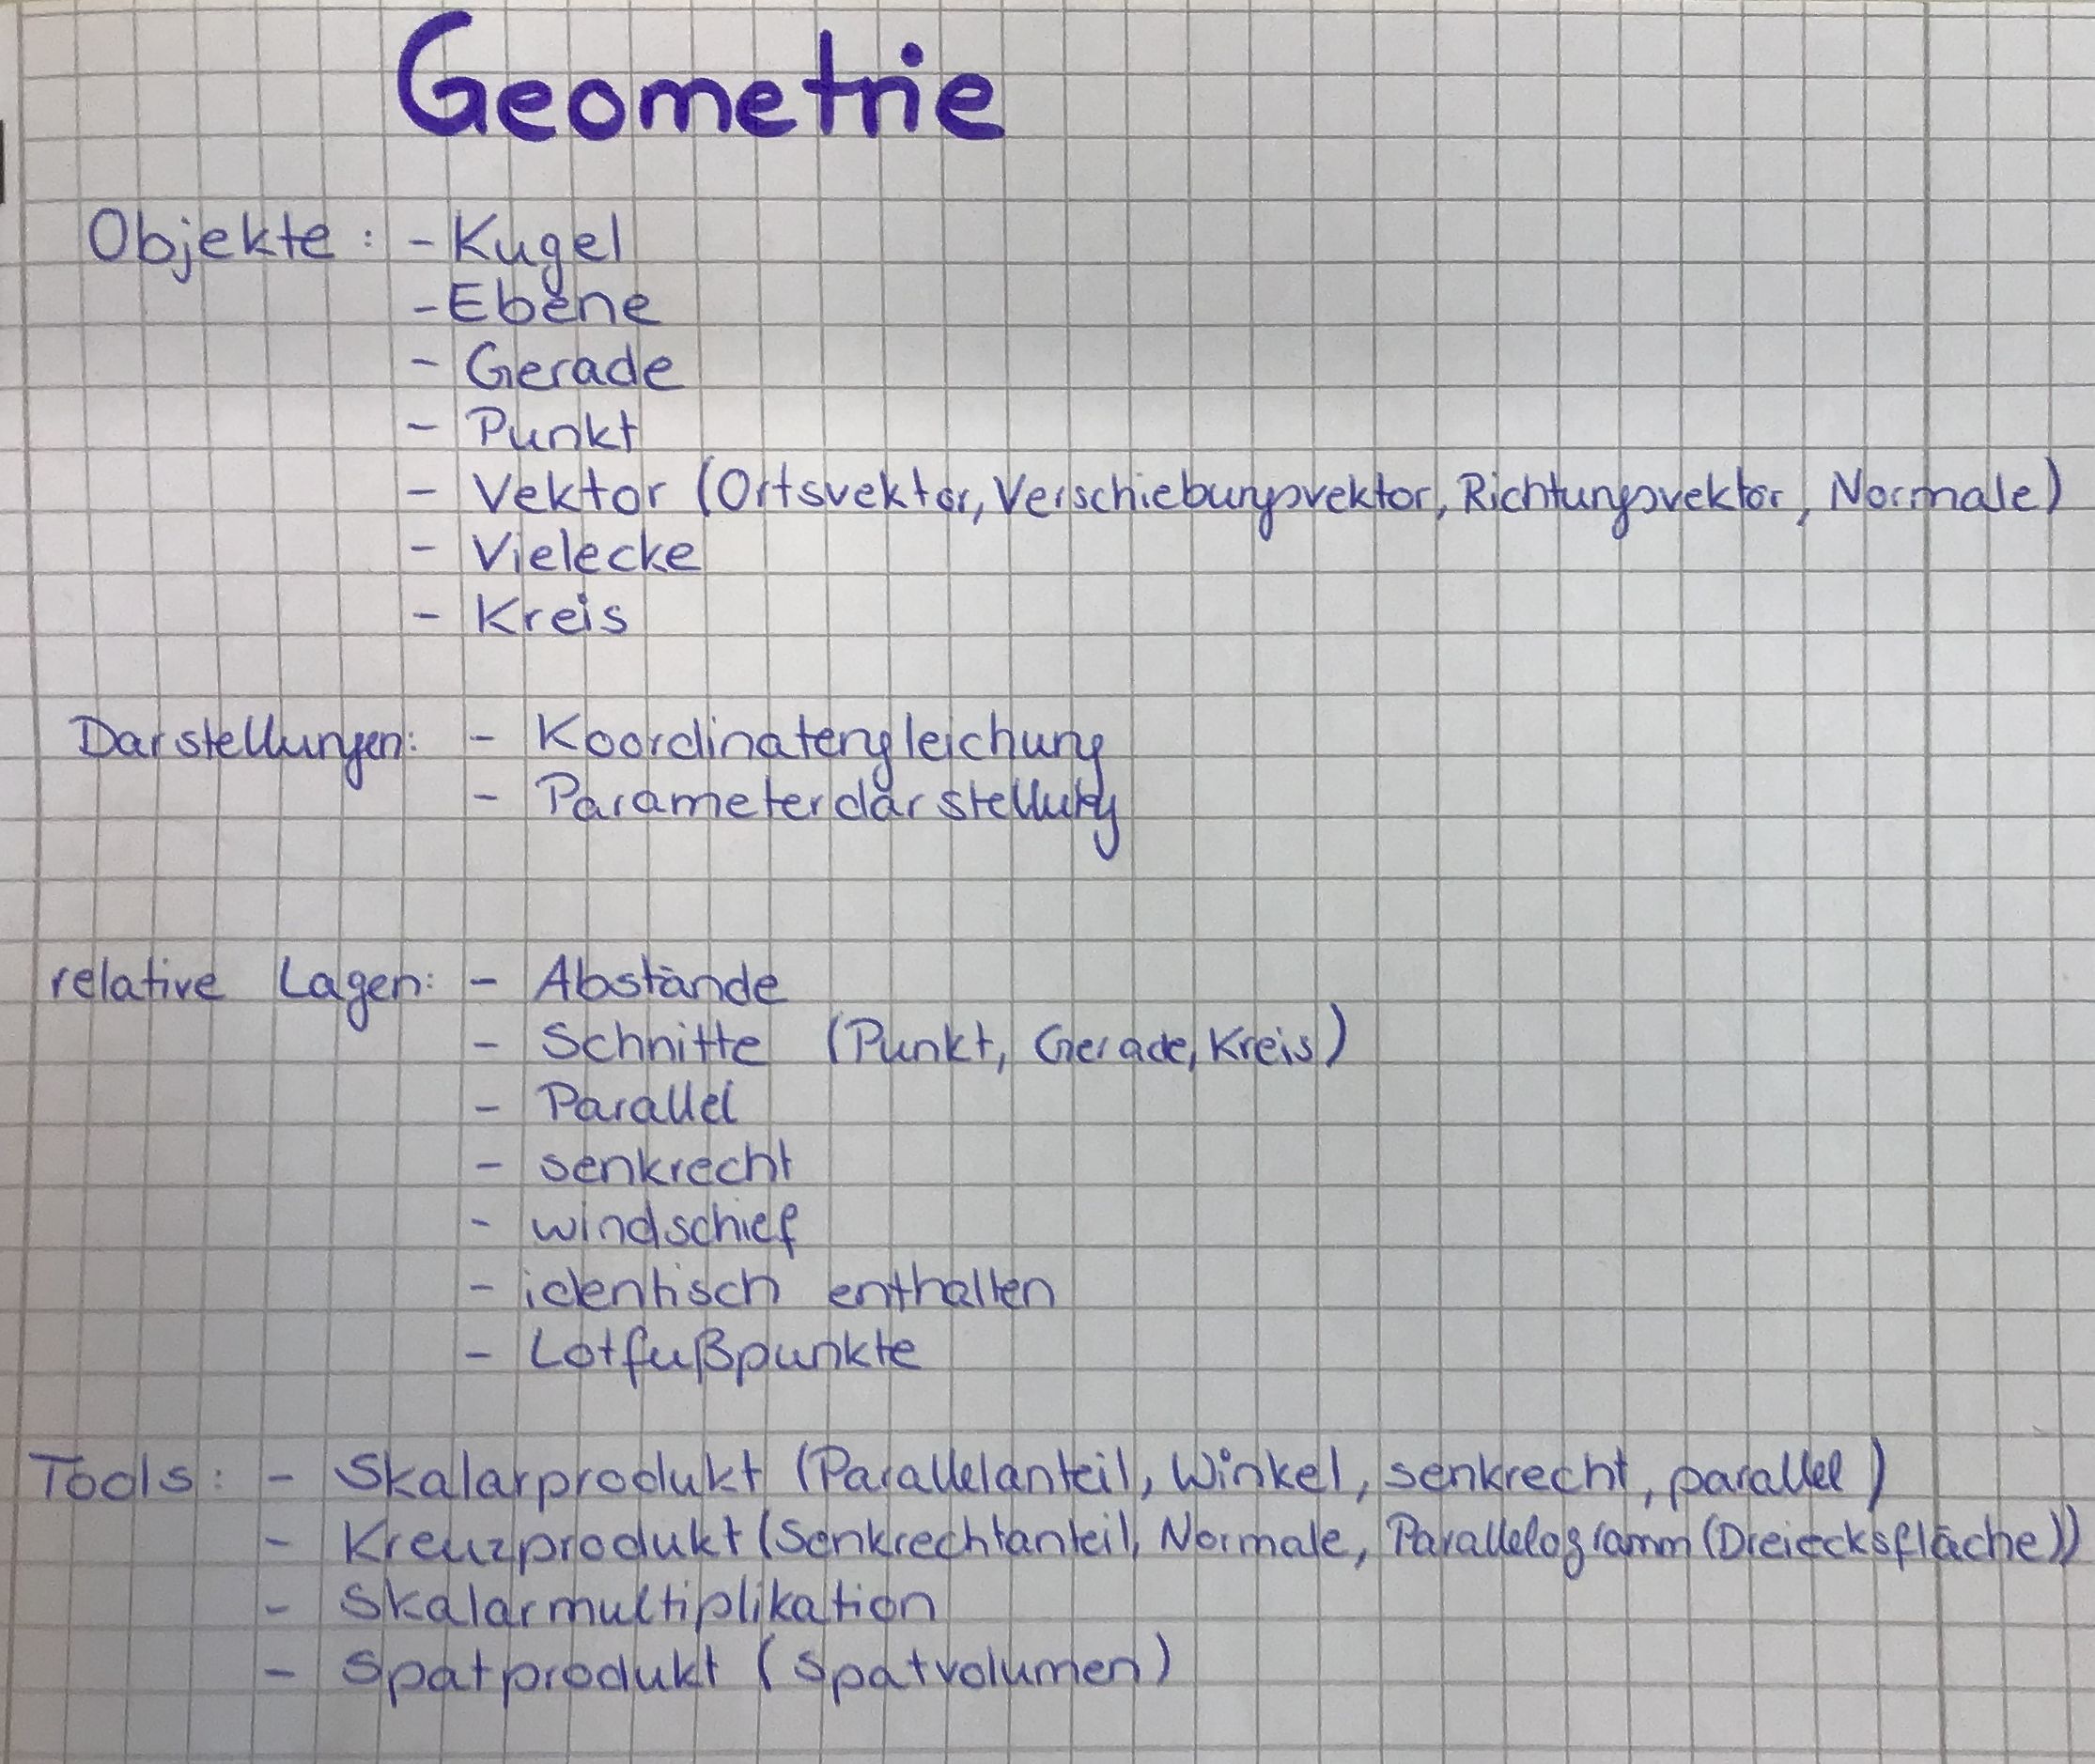 Geometrie
Objekte: - Kugel
- Ebene
- Gerade
- Punkt
- Vektor (Ortsvektor, Verschiebungsvektor, Richtungsvektor, Normale)
- Vielecke
- Kreis
Darstellungen: - Koordinatengleichung
- Parameterdarstellung
relative Lagen: - Abstände
- Schnitte (Punkt, Gerade, Kreis)
- Parallel
- senkrecht
- windschief
- identisch enthalten
- Lotfußpunkte
Tools: - Skalarprodukt (Parallelanteil, Winkel, senkrecht, parallel)
- Kreuzprodukt (Senkrechtanteil, Normale, Parallelogramm (Dreiecksfläche))
- Skalarmultiplikation
- Spatprodukt (Spatvolumen)